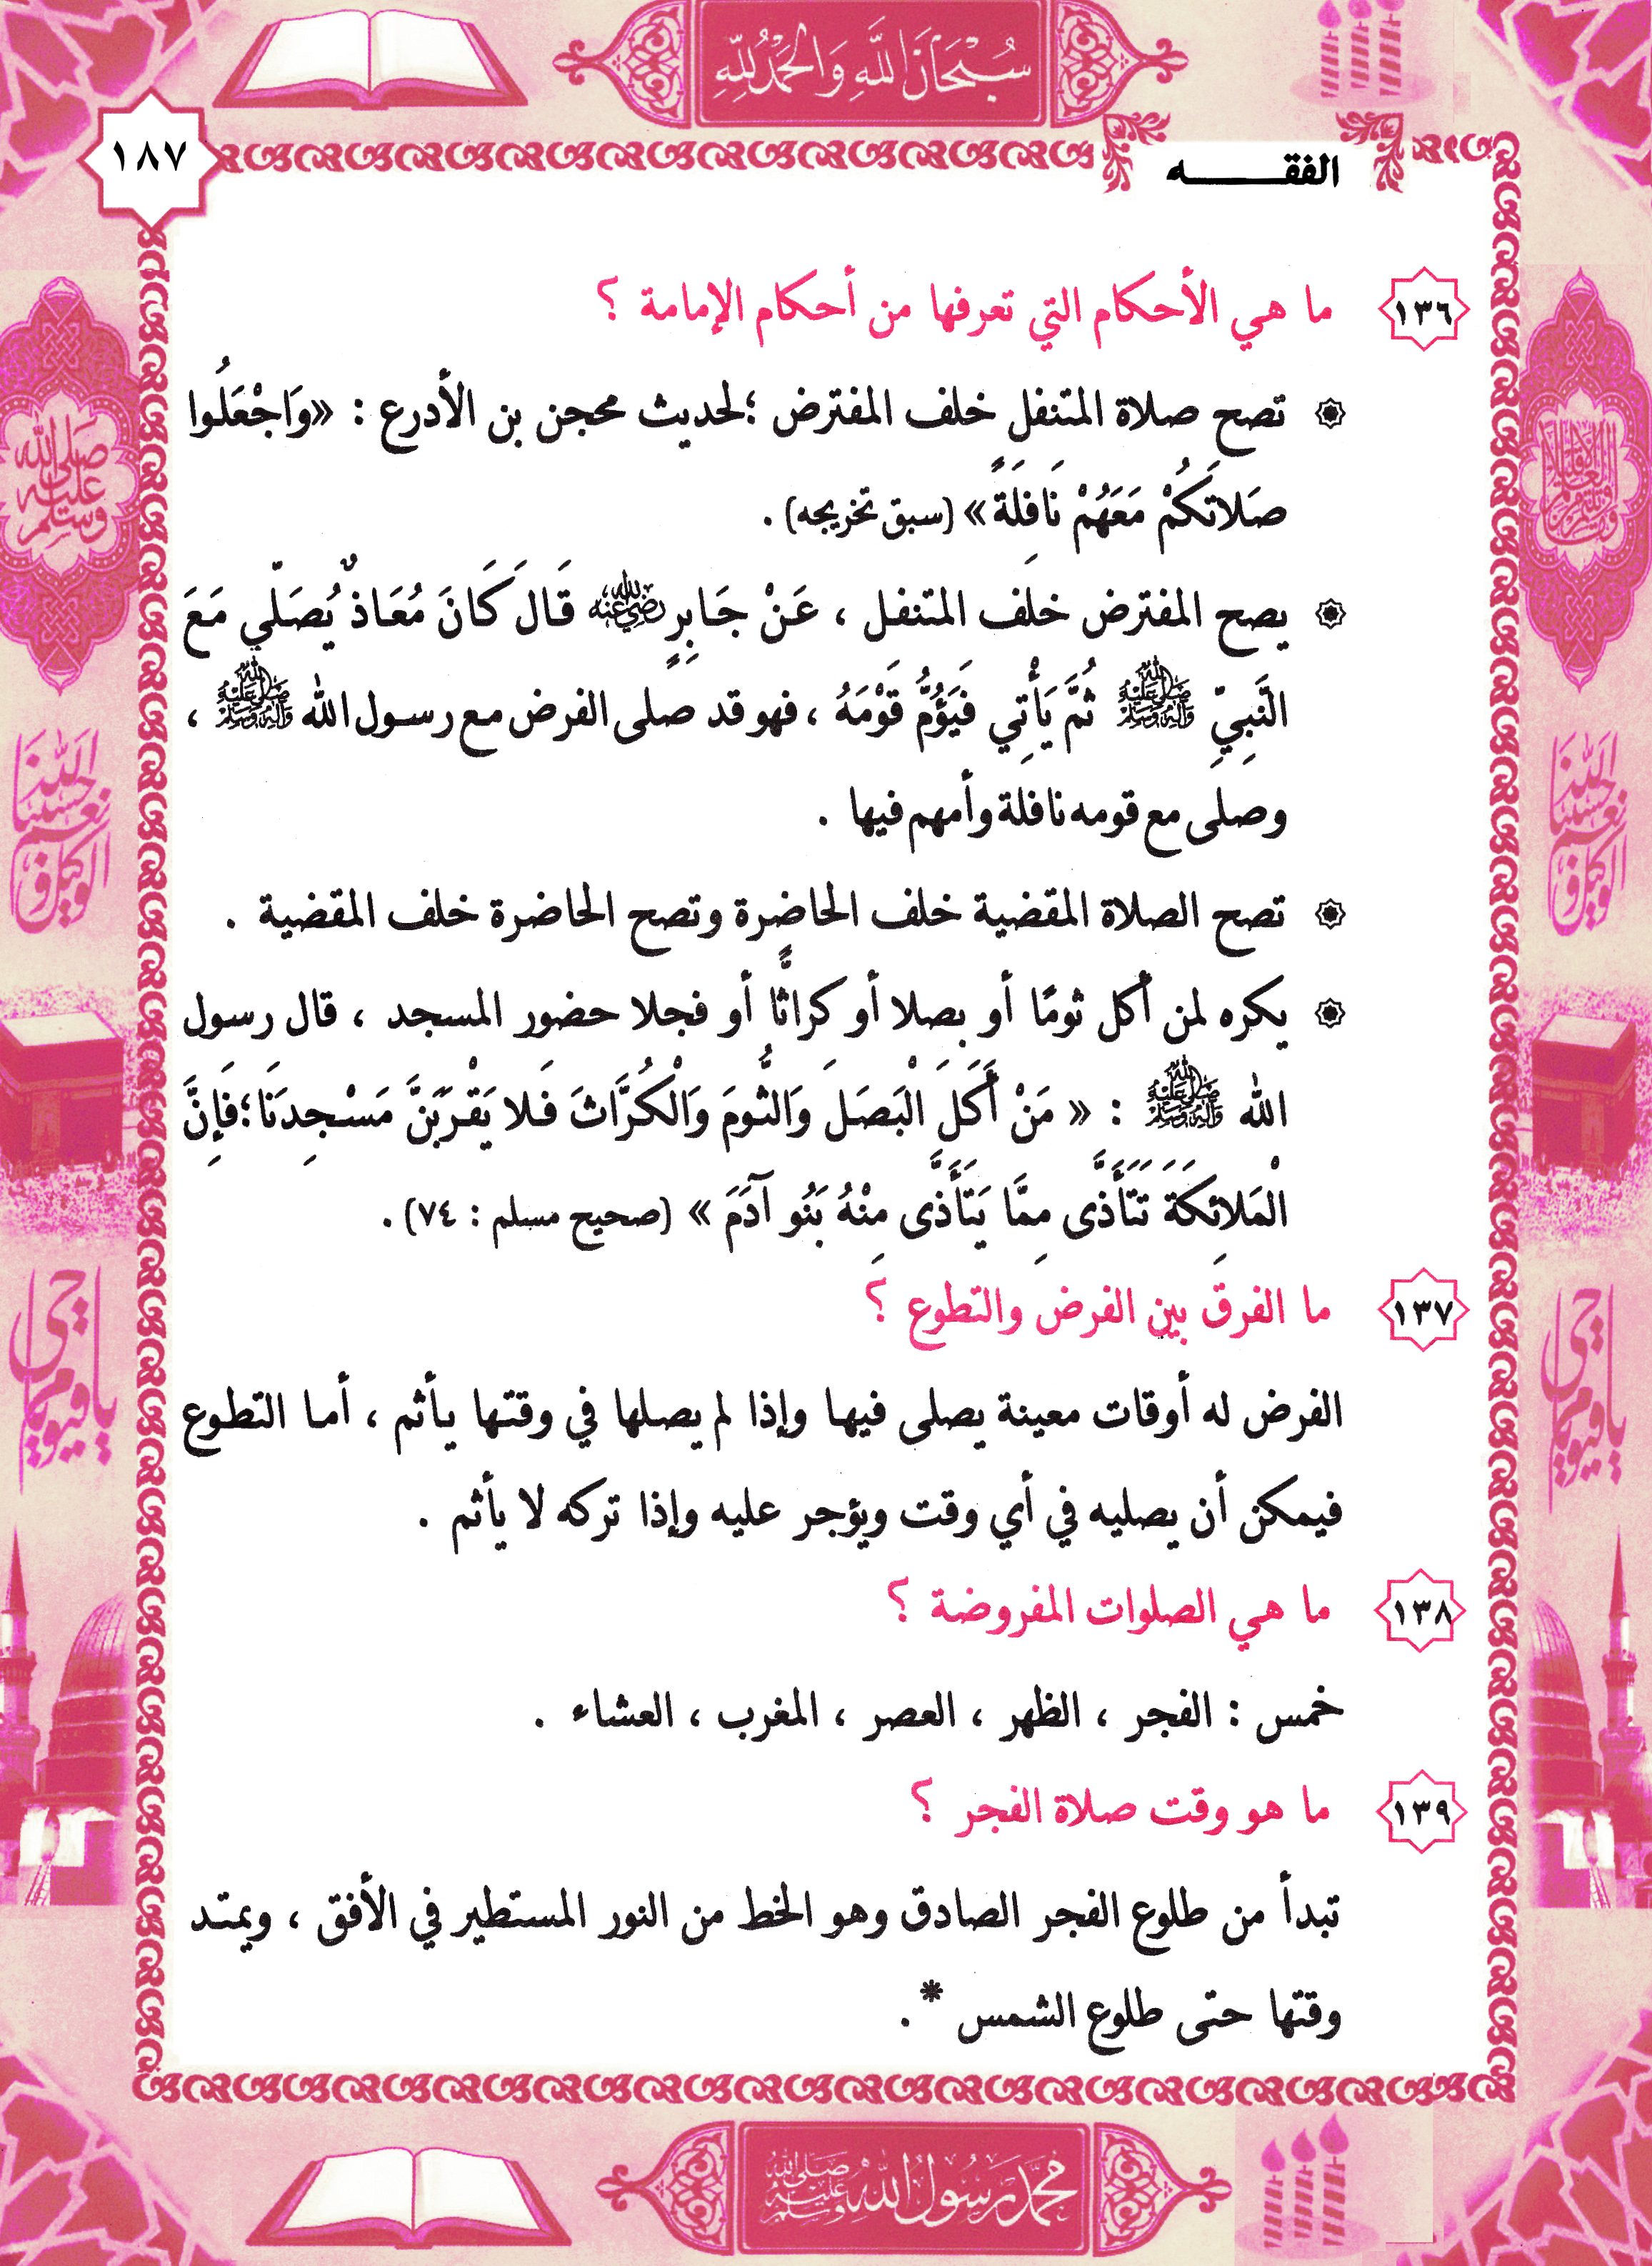 سُبْحَانَ اللَّهِ وَالْحَمْدُ لِلَّهِ
١٨٧
الفقه
١٣٦ ما هي الأحكام التي تعرفها من أحكام الإمامة ؟
تصح صلاة المتنفل خلف المفترض ؛لحديث محجن بن الأدرع : «وَاجْعَلُوا
صَلَاتَكُمْ مَعَهُمْ نَافِلَةً» (سبق تخريجه) .
يصح المفترض خلف المتنفل ، عَنْ جَابِرٍ رضي الله عنه قَالَ كَانَ مُعَاذٌ يُصَلِّي مَعَ
النَّبِيِّ ﷺ ثُمَّ يَأْتِي فَيَؤُمُّ قَوْمَهُ ، فهو قد صلى الفرض مع رسول الله ﷺ ،
وصلى مع قومه نافلة وأمهم فيها .
تصح الصلاة المقضية خلف الحاضرة وتصح الحاضرة خلف المقضية .
يكره لمن أكل ثومًا أو بصلا أو كراثًّا أو فجلا حضور المسجد ، قال رسول
الله ﷺ : « مَنْ أَكَلَ الْبَصَلَ وَالثُّومَ وَالْكُرَّاثَ فَلا يَقْرَبَنَّ مَسْجِدَنَا؛فَإِنَّ
الْمَلائِكَةَ تَتَأَذَّى مِمَّا يَتَأَذَّى مِنْهُ بَنُو آدَمَ » (صحيح مسلم : ٧٤) .
١٣٧ ما الفرق بين الفرض والتطوع ؟
الفرض له أوقات معينة يصلى فيها وإذا لم يصلها في وقتها يأثم ، أما التطوع
فيمكن أن يصليه في أي وقت ويؤجر عليه وإذا تركه لا يأثم .
١٣٨ ما هي الصلوات المفروضة ؟
خمس : الفجر ، الظهر ، العصر ، المغرب ، العشاء .
١٣٩ ما هو وقت صلاة الفجر ؟
تبدأ من طلوع الفجر الصادق وهو الخط من النور المستطير في الأفق ، ويمتد
وقتها حتى طلوع الشمس * .
صلى الله عليه وسلم
حسبنا الله ونعم الوكيل
يا حي يا قيوم
حسبنا الله ونعم الوكيل
يا حي يا قيوم
محمد رسول الله صلى الله عليه وسلم